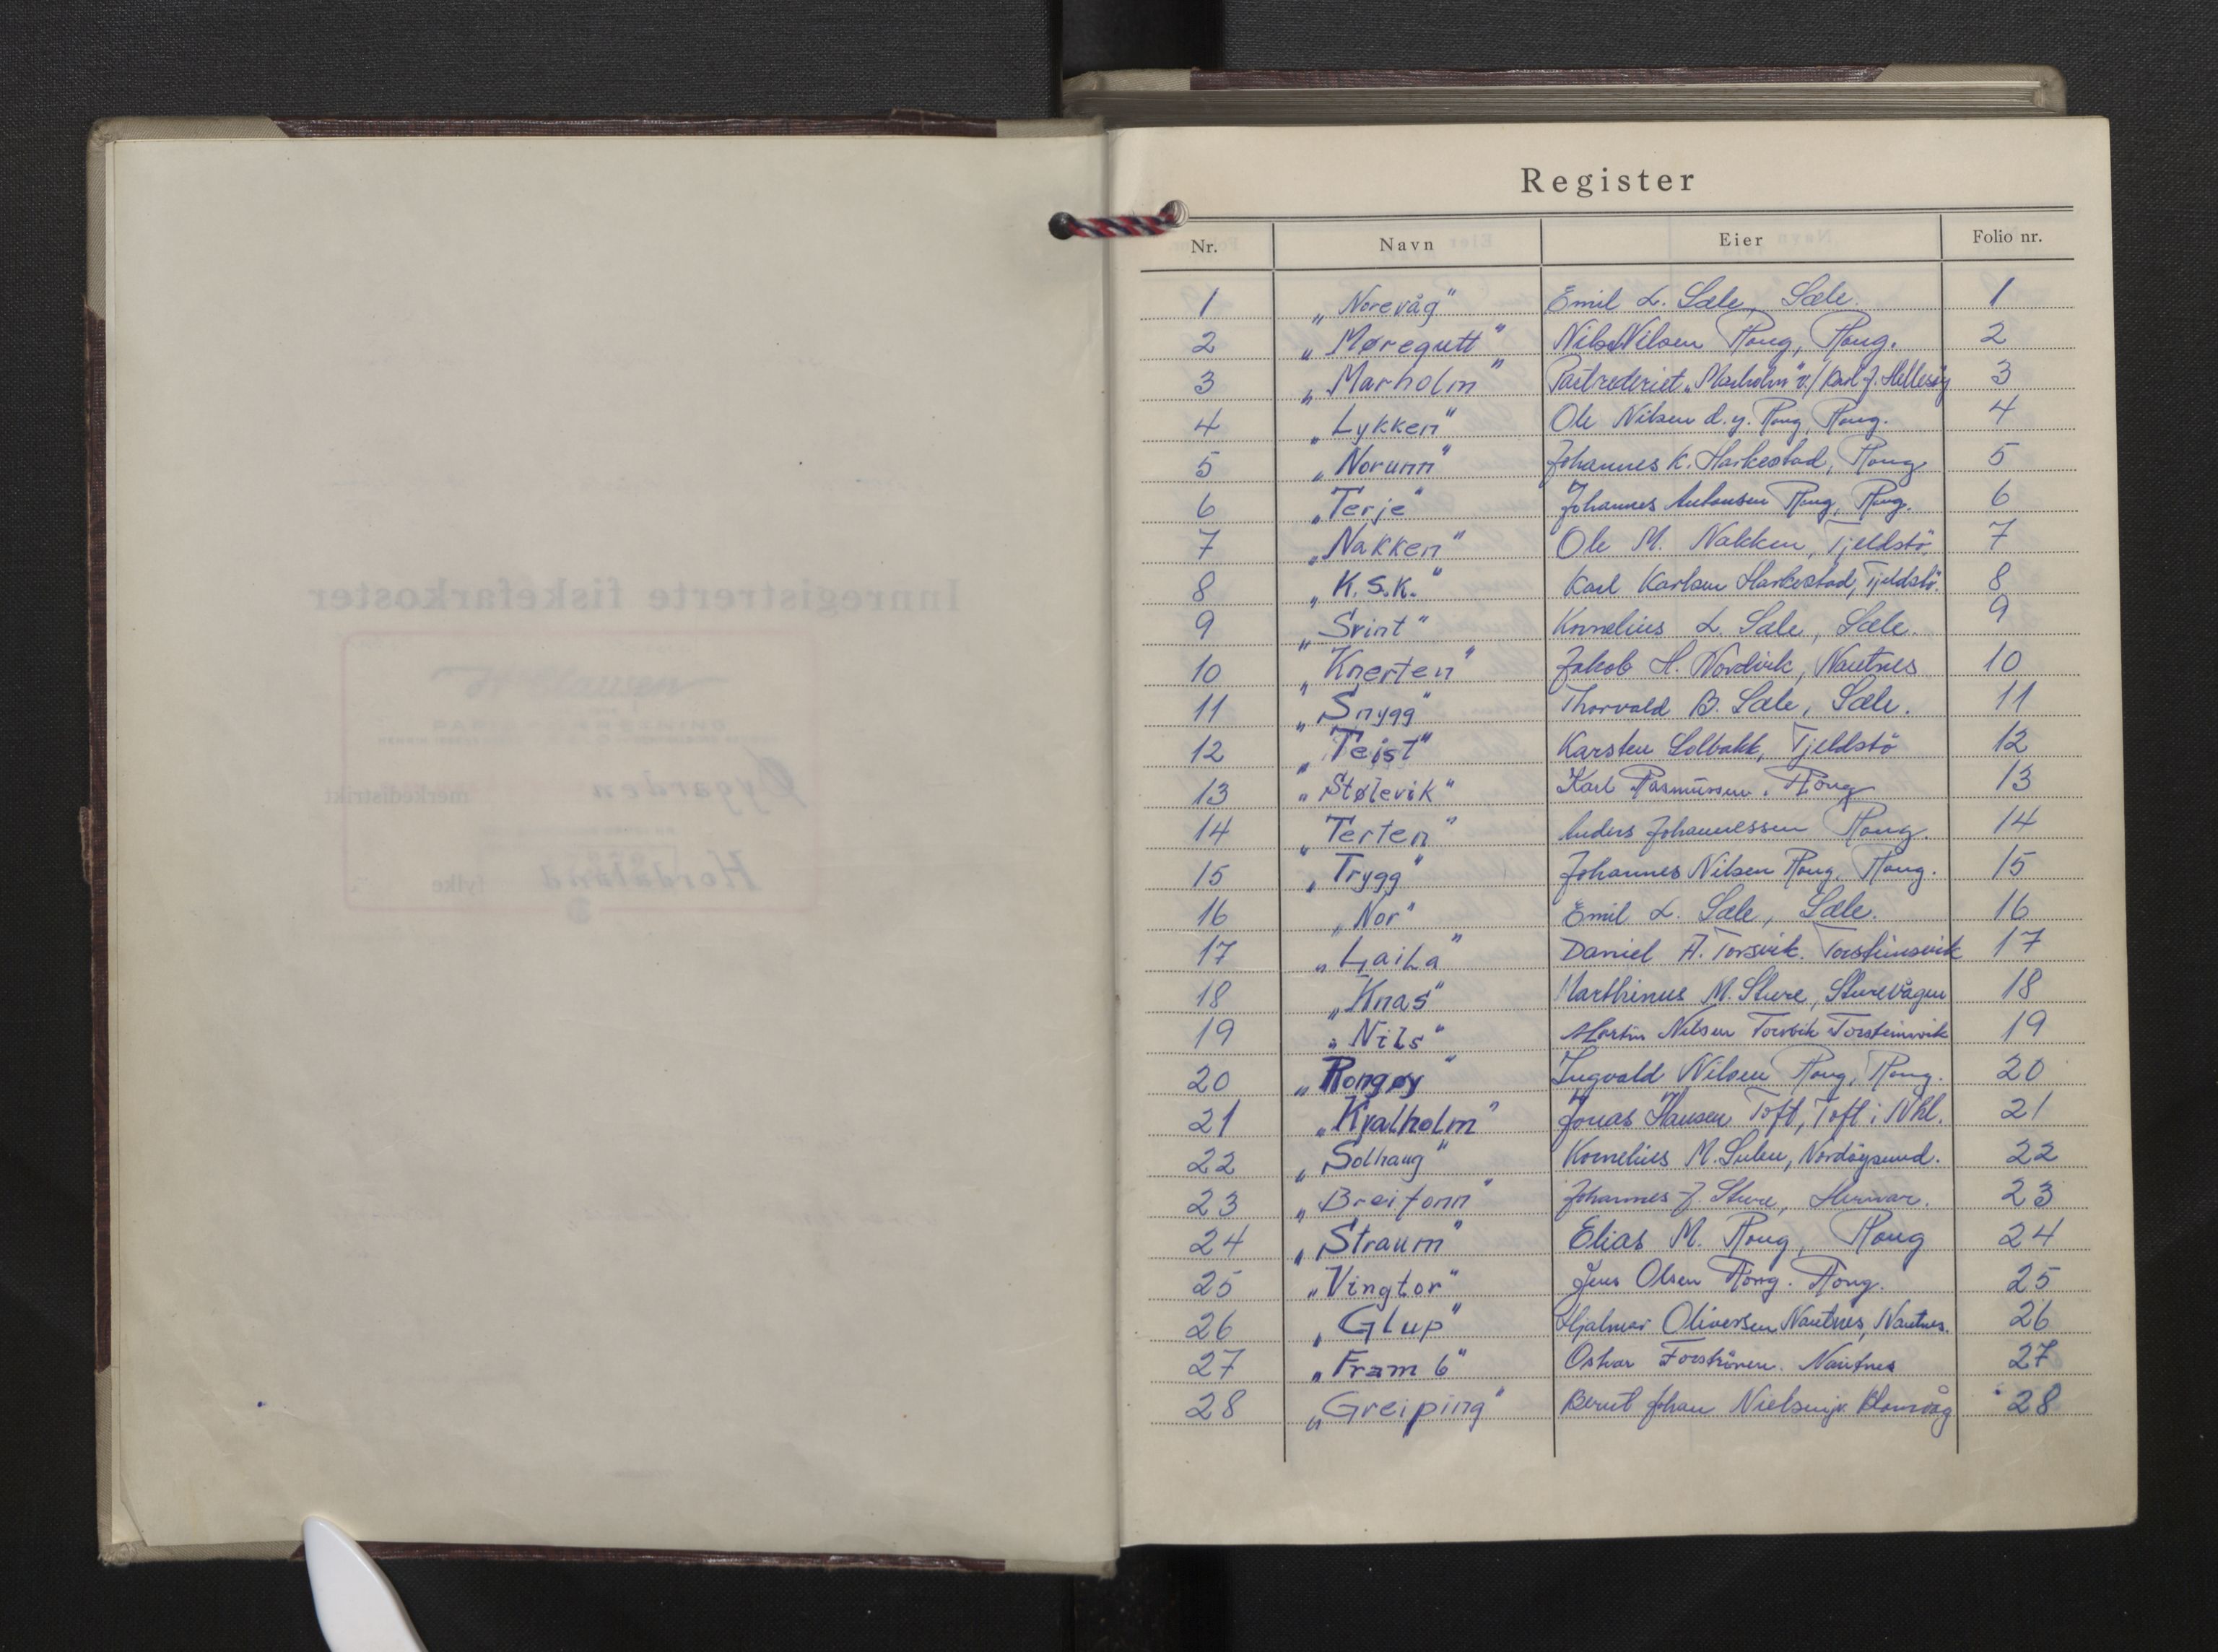 Innregistrerte fiskefarkoster
Øygarden merkedistrikt
Hordaland fylke
Register
Nr. Navn Eier Folio nr.
1 „Norevåg" Emil L. Sæle, Sæle. 1
2 „Møregutt" Nils Nilsen Rong, Rong. 2
3 „Marholm" Partrederiet „Marholm" v/ Karl J. Hellesøy 3
4 „Lykken" Ole Nilsen d.y. Rong, Rong. 4
5 „Norunn" Johannes K. Harkestad, Rong 5
6 „Terje" Johannes Antonsen Rong, Rong. 6
7 „Nakken" Ole M. Nakken, Tjeldstö. 7
8 „K.S.K." Karl Karlsen Harkestad, Tjeldstö. 8
9 „Svint" Kornelius L. Sæle, Sæle. 9
10 „Knerten" Jakob H. Nordvik, Nautnes 10
11 „Snygg" Thorvald B. Sæle, Sæle. 11
12 „Teist" Karsten Solbakk, Tjeldstö 12
13 „Stølevik" Karl Rasmussen. Rong 13
14 „Terten" Anders Johannessen Rong. 14
15 „Trygg" Johannes Nilsen Rong, Rong. 15
16 „Nor" Emil L. Sæle, Sæle. 16
17 „Laila" Daniel A. Torsvik. Torsteinsvik 17
18 „Knas" Marthinus M. Sture, Sturevågen 18
19 „Nils" Martin Nilsen Torsvik Torsteinsvik 19
20 „Rongøy" Ingvald Nilsen Rong, Rong. 20
21 „Kvalholm" Jonas Hansen Toft, Toft i Nhl. 21
22 „Solhaug" Kornelius M. Sulen, Nordöysund. 22
23 „Breifonn" Johannes J. Sture, Hernar. 23
24 „Straum" Elias M. Rong, Rong 24
25 „Vingtor" Jens Olsen Rong. Rong. 25
26 „Glup" Hjalmar Oliversen Nautnes, Nautnes. 26
27 „Fram 6" Oskar Nautnes 27
28 „Greiping" Bernt Johan Nielsen jr. Blomvåg 28